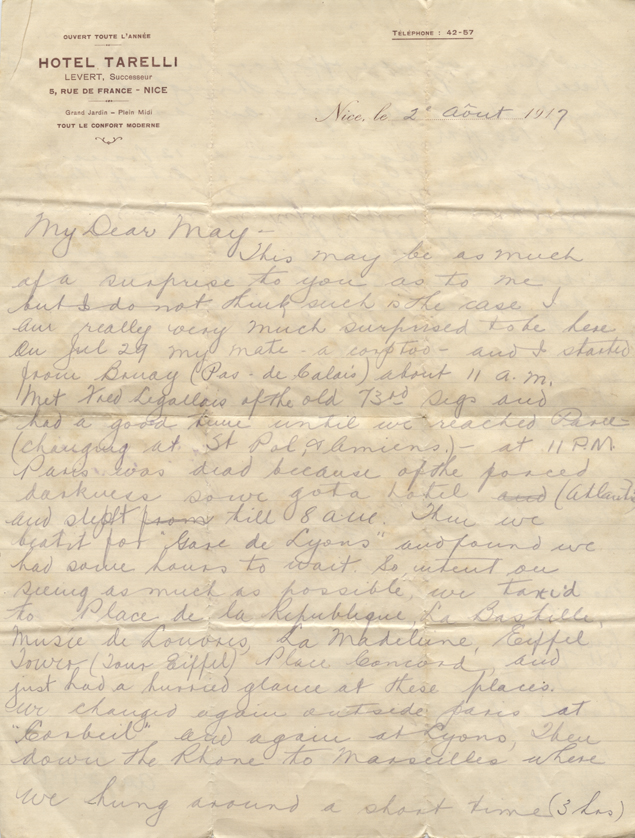 OUVERT TOUTE L'ANNÉE
HOTEL TARELLI
LEVERT, Successeur
5, RUE DE FRANCE - NICE
Grand Jardin — Plein Midi
TOUT LE CONFORT MODERNE
TÉLÉPHONE : 42-57
Nice, le 2e Août 1917
My Dear May -
This may be as much
of a surprise to you as to me
but I do not think such is the case I
am really very much surprised to be here
On Jul 29 my mate - a corp too - and I started
from Bruay (Pas-de Calais) about 11 a.m.
Met Fred Legallais of the old 73rd sigs and
had a good time until we reached Paree
(changing at St Pol, & Amiens,) - at 11 P.M.
Paris was dead because of the forced
darkness so we got a hotel and (Atlantis
and slept from till 8 am. Then we
beat it for "Gare de Lyons" and found we
had some hours to wait. So, intent on
seeing as much as possible, we taxi'd
to Place de la Republique, La Bastille,
Musie de Louvres, La Madeleine, Eiffel
Tower (Tour Eiffel) Place Concord, and
just had a hurried glance at these places.
We changed again outside paris at
"Corbeil" and again at Lyons, Then
down the Rhone to Marseilles where
we hung around a short time (3 hrs)